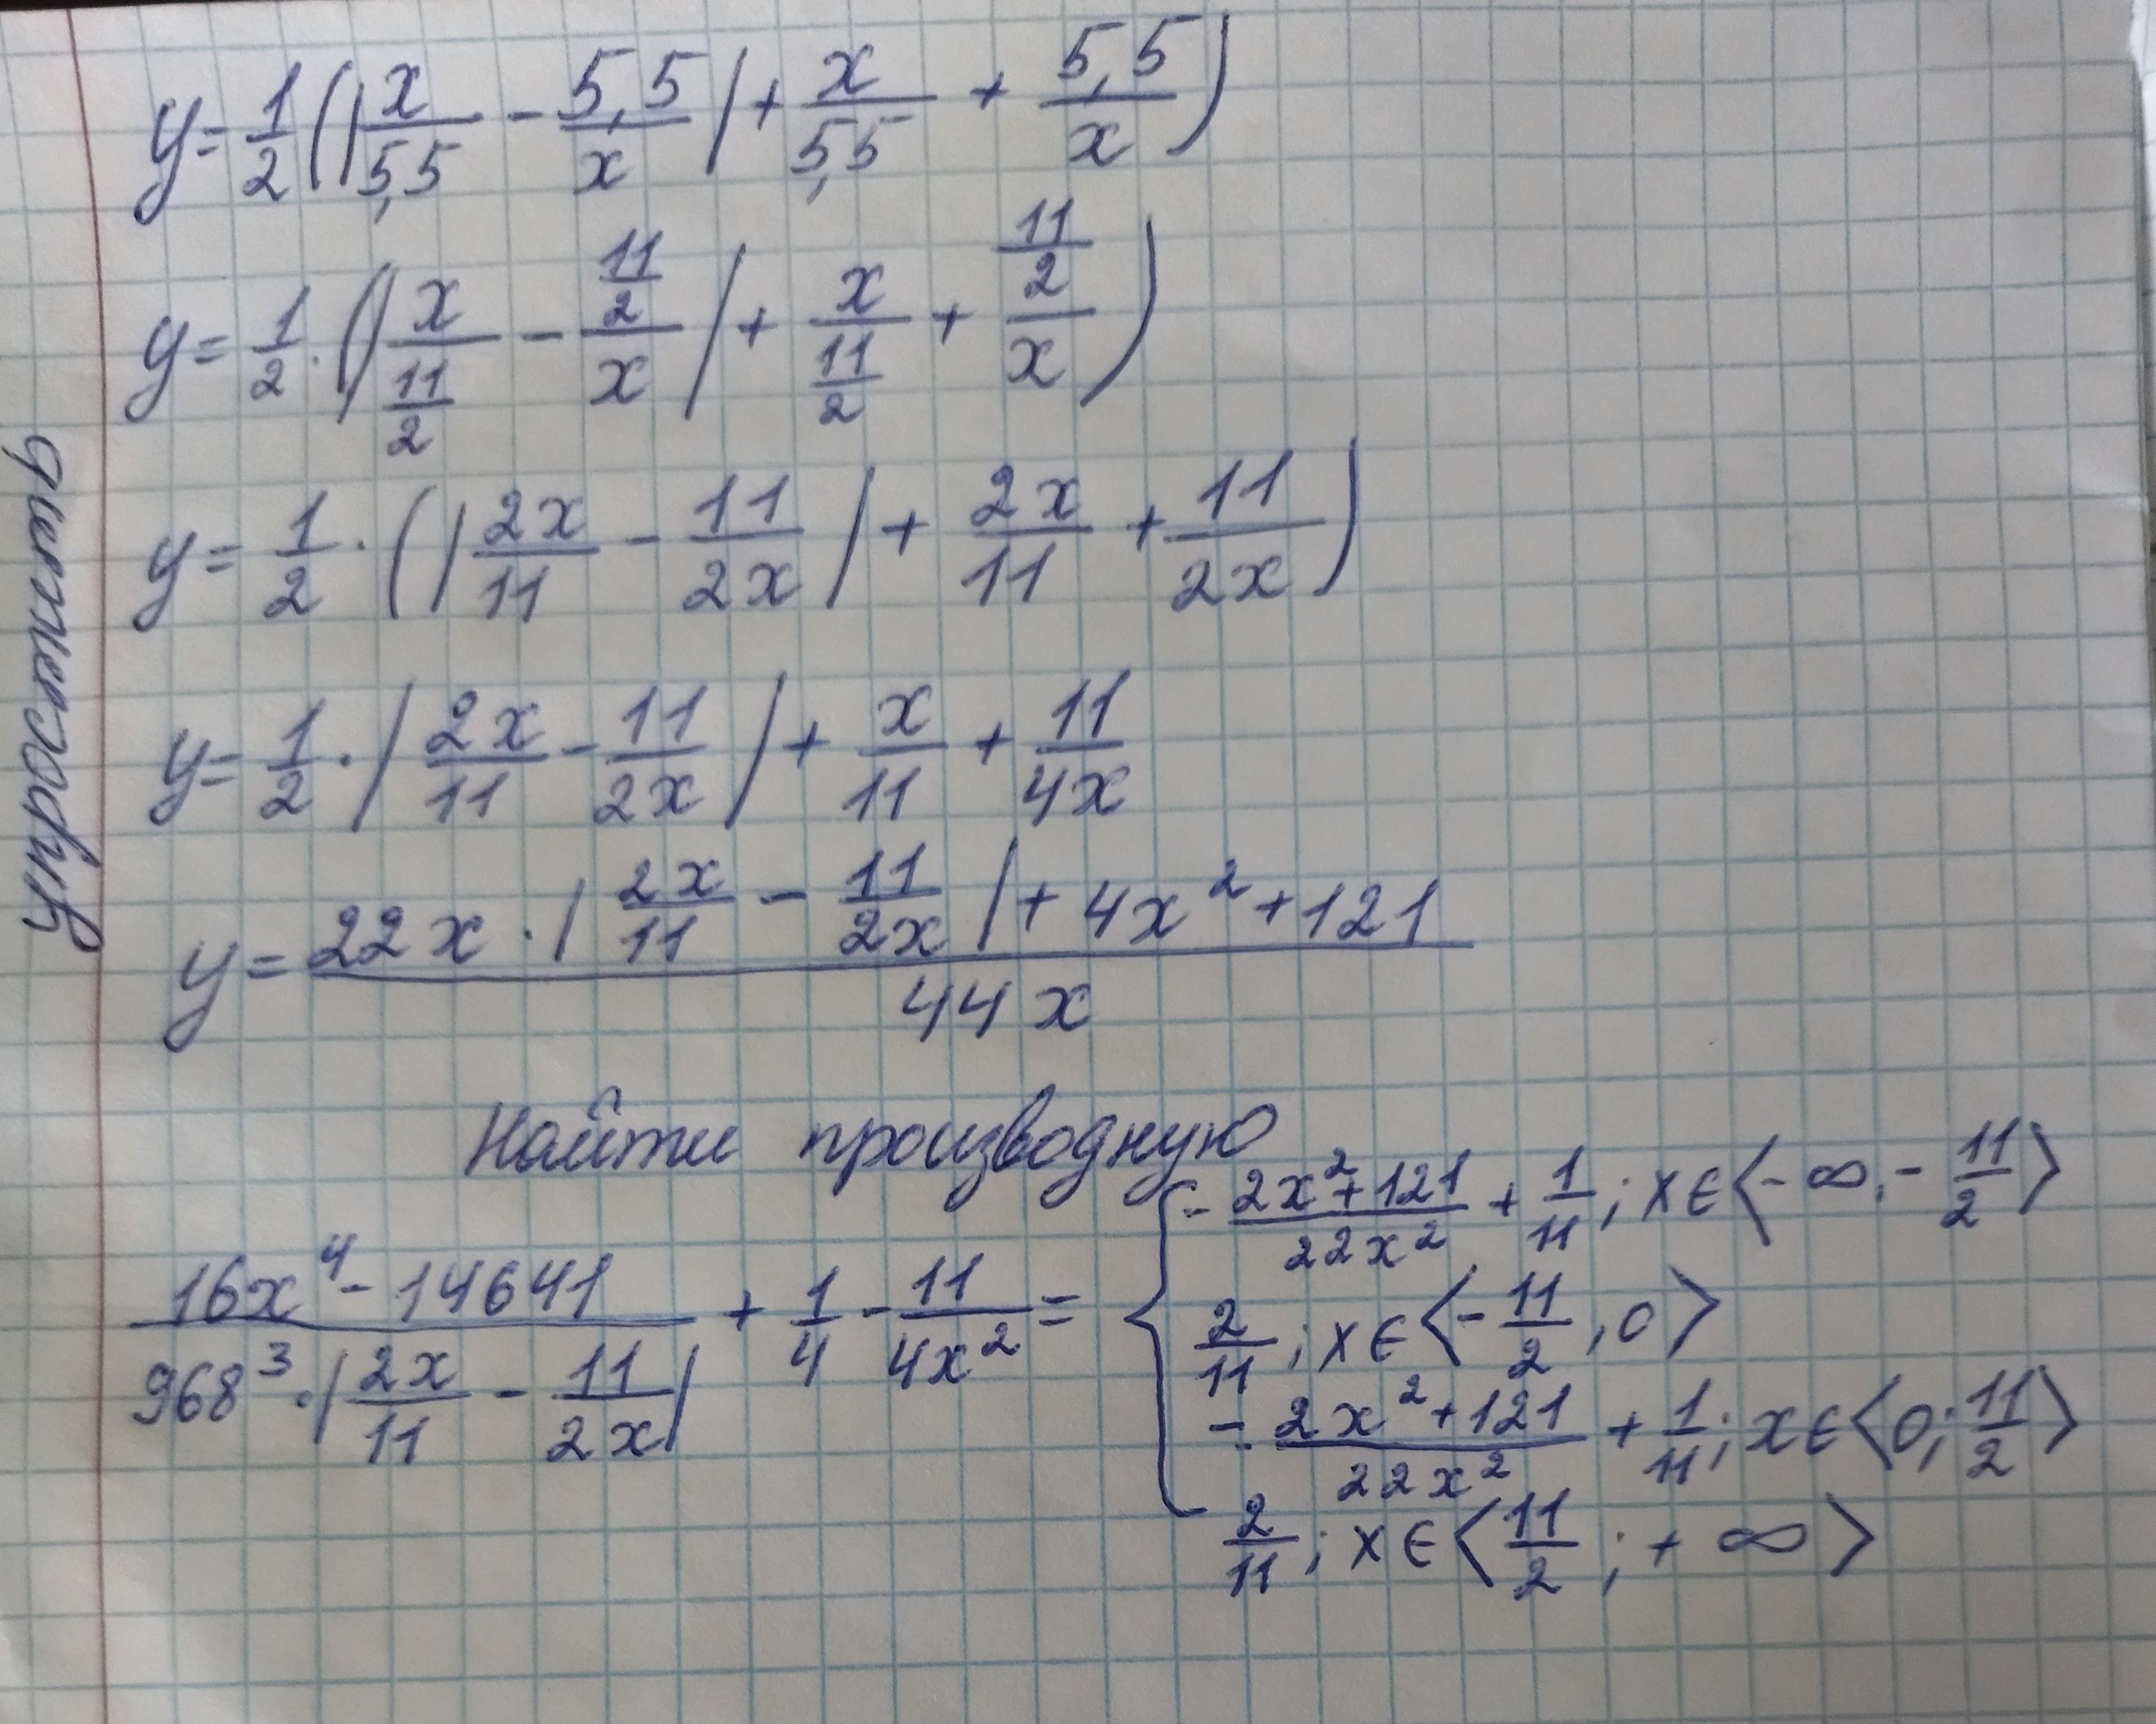 y = 1/2 (|x/5,5 - 5,5/x| + x/5,5 + 5,5/x)
y = 1/2 · (|x/(11/2) - (11/2)/x| + x/(11/2) + (11/2)/x)
y = 1/2 · (|2x/11 - 11/2x| + 2x/11 + 11/2x)
y = 1/2 · |2x/11 - 11/2x| + x/11 + 11/4x
y = (22x · |2x/11 - 11/2x| + 4x² + 121)/44x
упростить
Найти производную
(16x⁴ - 14641)/(968³ · |2x/11 - 11/2x|) + 1/4 - 11/4x² = {
- (2x² + 121)/22x² + 1/11; x ∈ ⟨-∞, -11/2⟩
2/11; x ∈ ⟨-11/2, 0⟩
- (2x² + 121)/22x² + 1/11; x ∈ ⟨0; 11/2⟩
2/11; x ∈ ⟨11/2; +∞⟩